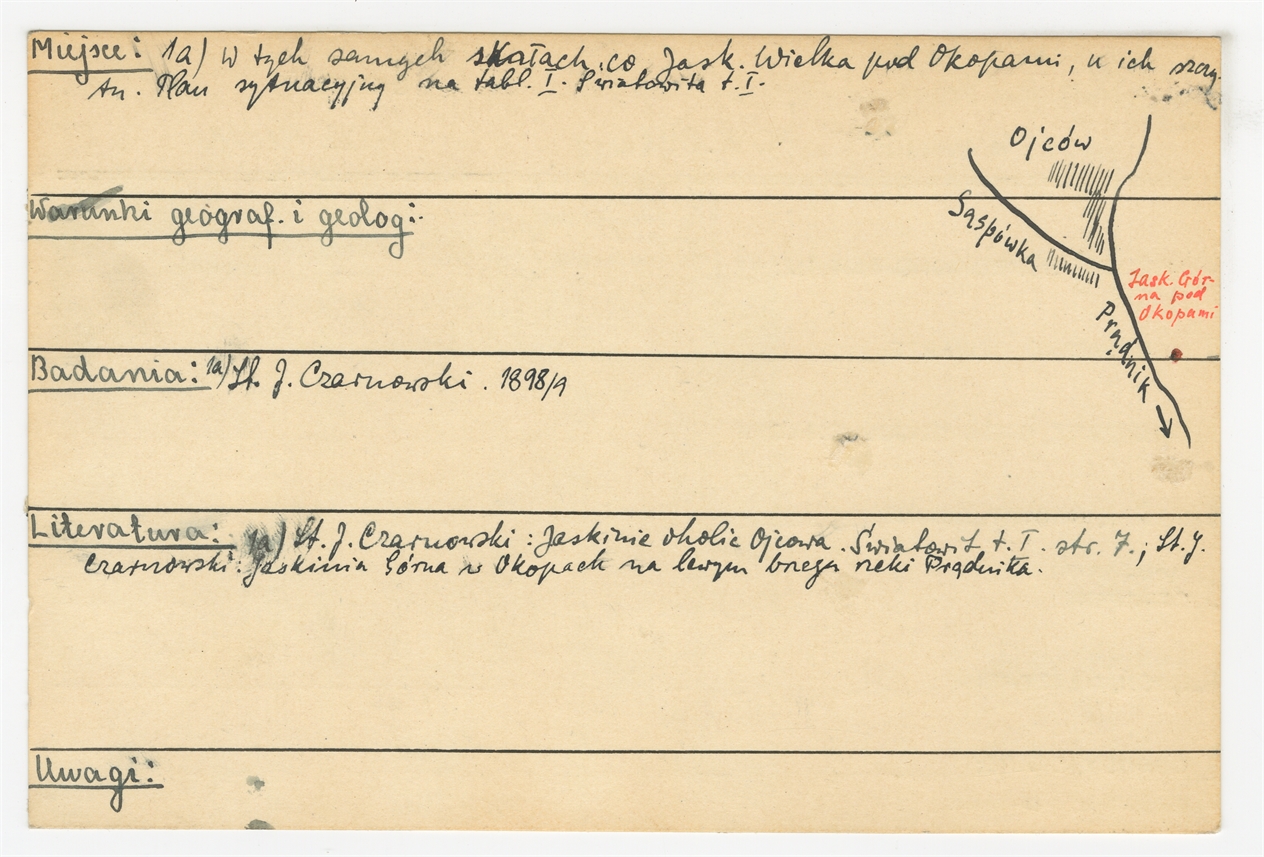 Miejsce: 1a) W tych samych skałach, co Jask. Wielka pod Okopami, u ich szczy-
tu. Plan sytuacyjny na tabl. I. Światowita t. I.
Ojców
Sąspówka
Jask. Gór-
na pod
Okopami
Prądnik
Warunki geograf. i geolog:
Badania: 1a) St. J. Czarnowski. 1898/9
Literatura: 1a) St. J. Czarnowski: Jaskinie okolic Ojcowa. Światowit t. I. str. 7.; St. J.
Czarnowski: Jaskinia Górna w Okopach na lewym brzegu rzeki Prądnika.
Uwagi: